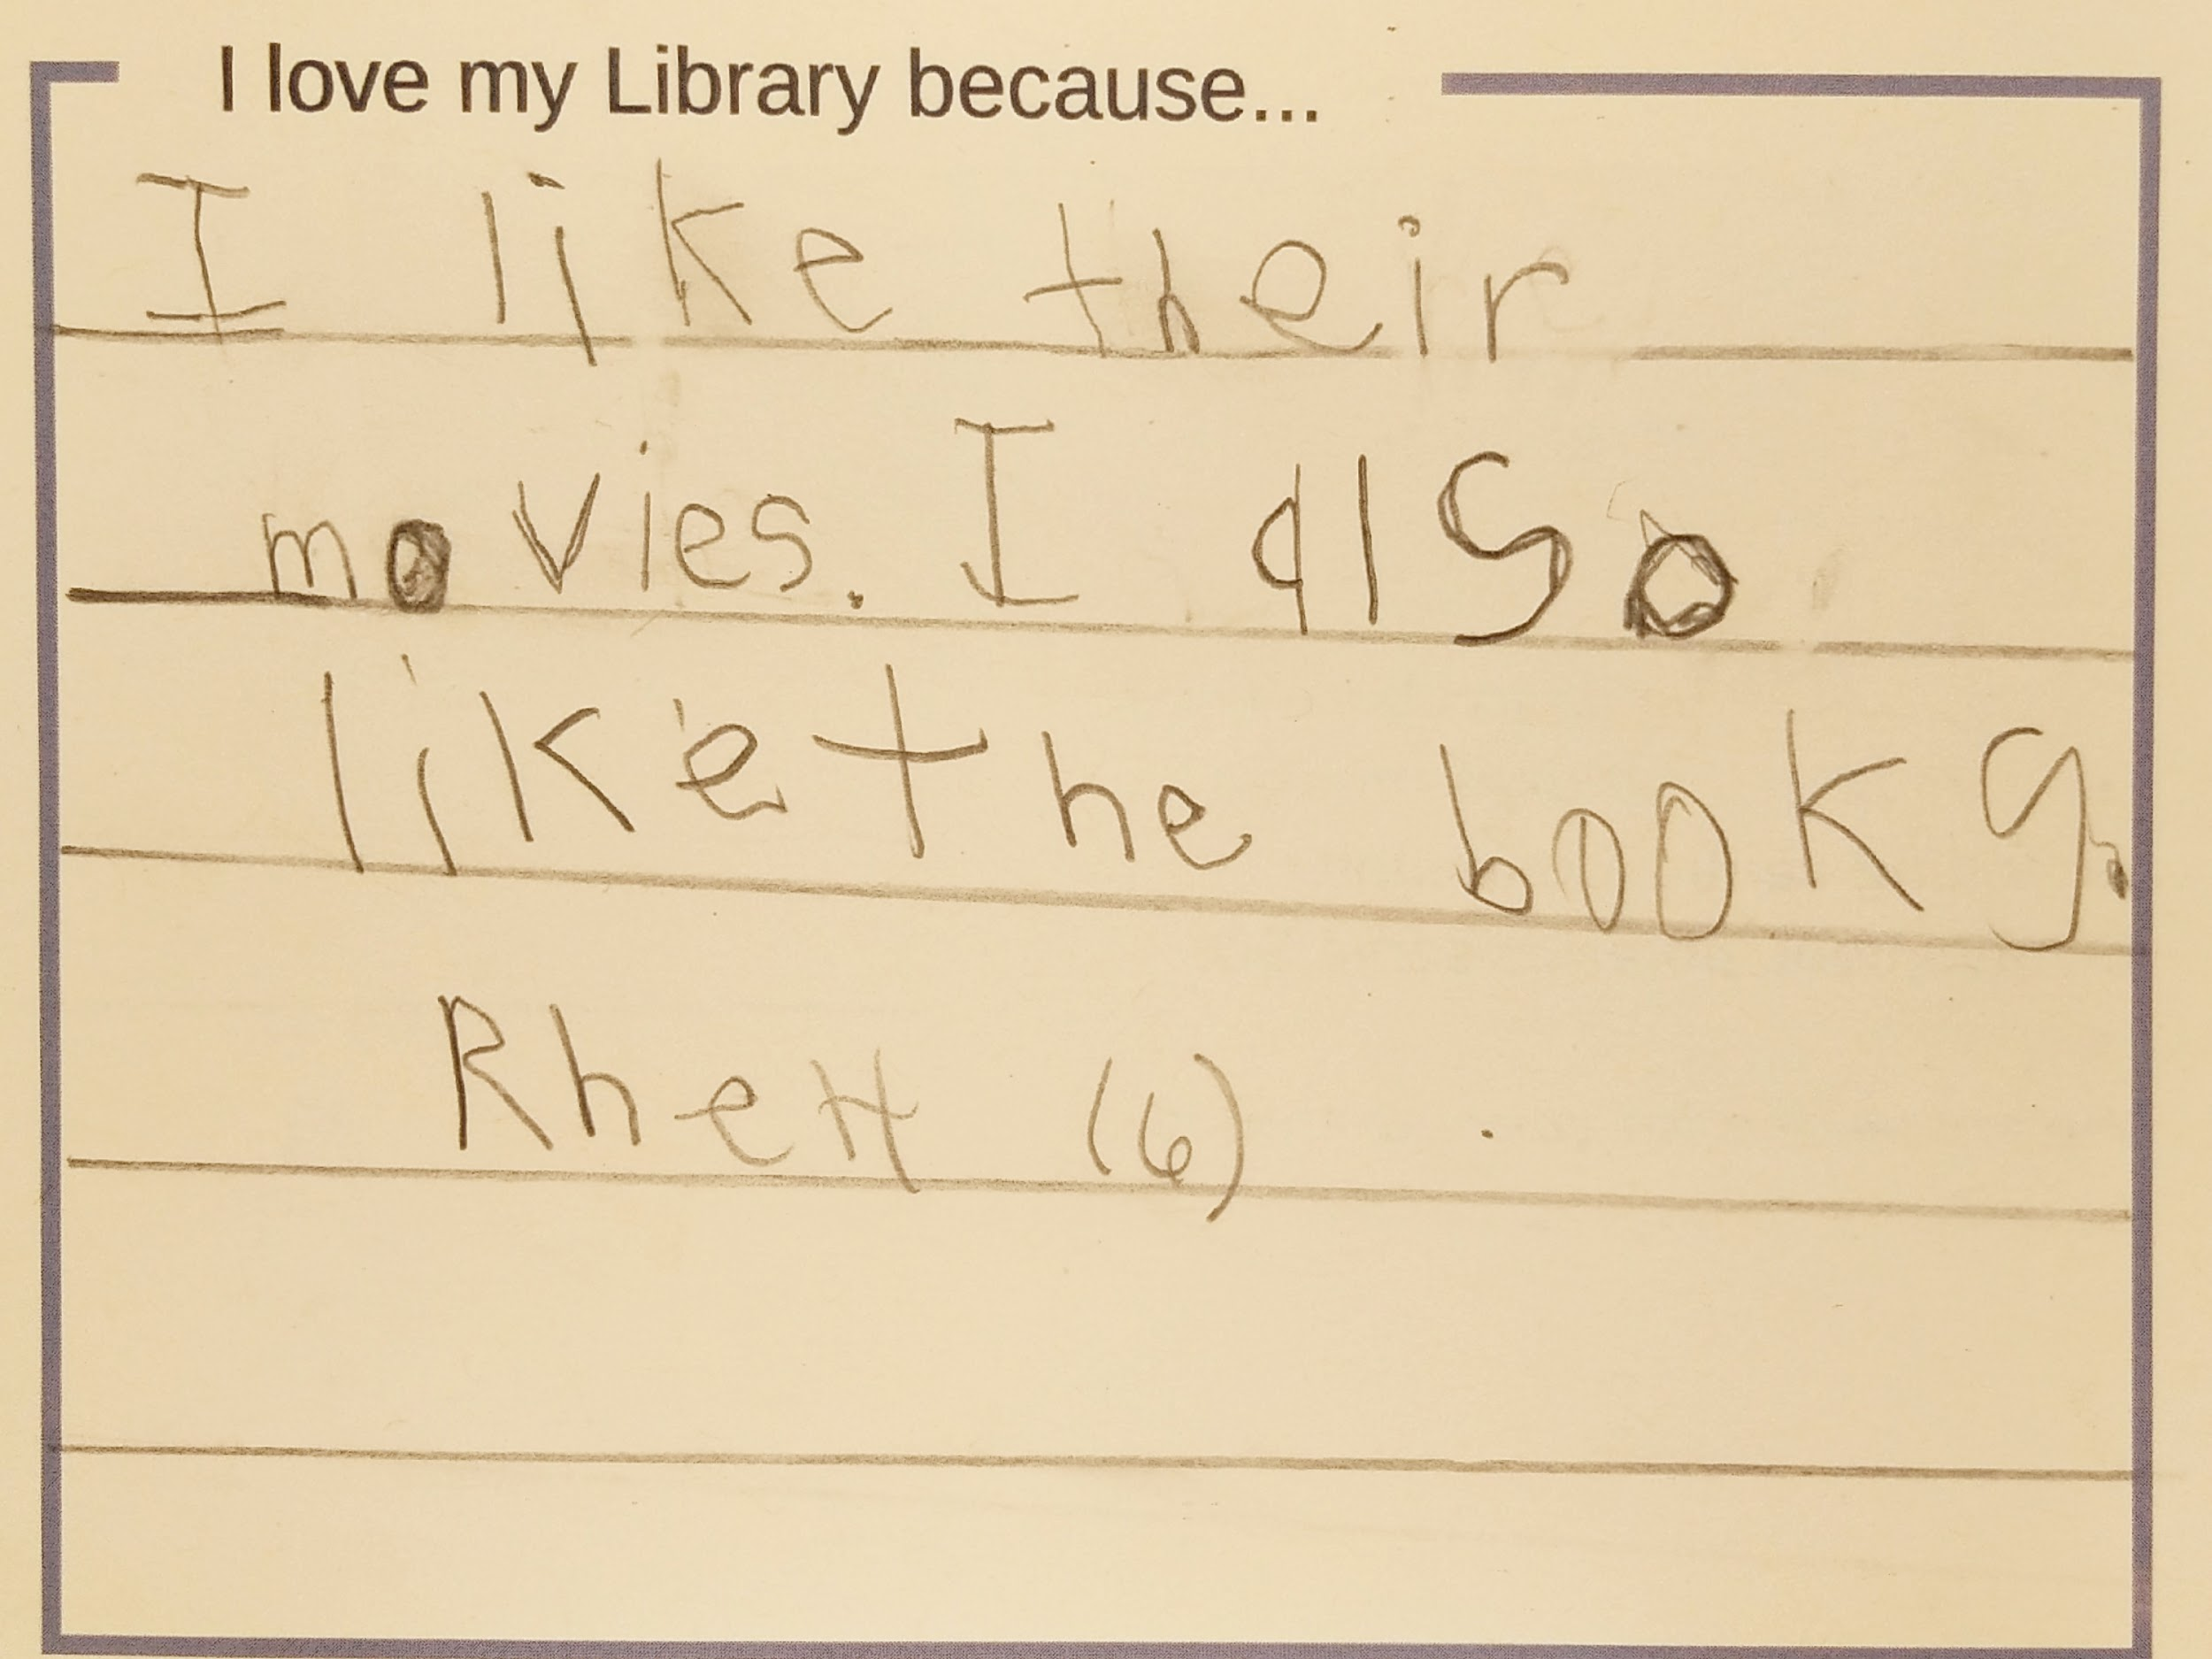 I love my Library because...
I like their
movies. I also
like the books.
Rhett (6)